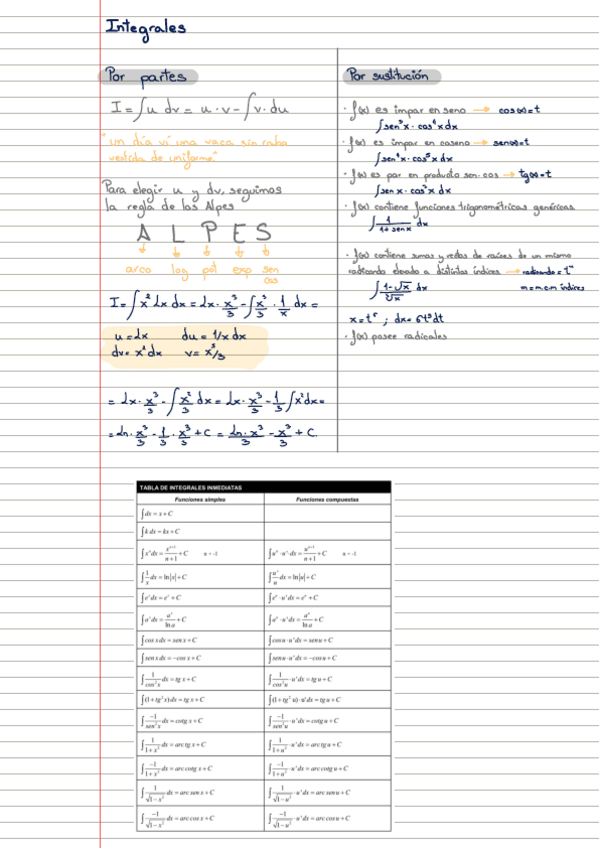 Integrales
Por partes
I = ∫u dv = u · v - ∫v · du
"un día vi una vaca sin
vestida de uniforme."
Para elegir u y dv, seguimos
la regla de los Alpes
A L P E S
arco log pol exp sen
cos
I = ∫x² Lx dx = Lx · x³/3 - ∫x³/3 · 1/x dx =
u = Lx du = 1/x dx
dv = x² dx v = x³/3
= Lx · x³/3 - ∫x²/3 dx = Lx · x³/3 - 1/3 ∫x² dx =
= Ln · x³/3 - 1/3 · x³/3 + C =
Por sustitución
· f(x) es impar en seno → cos(x)=t
∫sen³x · cos⁴x dx
· f(x) es impar en coseno → sen(x)=t
∫sen⁴x · cos⁵x dx
· f(x) es par en producto sen·cos → tg(x)=t
∫sen x · cos³x dx
· f(x) contiene funciones trigonométricas genéricas.
∫ 1/(1+senx) dx
· f(x) contiene sumas y restas de raíces de un mismo
radicando elevado a distintos índices → radicando = tᵐ
m=m.c.m índices
x = t⁶ ; dx = 6t⁵dt
· f(x) posee radicales
TABLA DE INTEGRALES INMEDIATAS
Funciones simples Funciones compuestas
∫dx = x + C
∫k dx = kx + C
∫xⁿ dx = xⁿ⁺¹/(n+1) + C n ≠ -1 ∫uⁿ · u' dx = uⁿ⁺¹/(n+1) + C n ≠ -1
∫1/x dx = ln|x| + C ∫u'/u dx = ln|u| + C
∫eˣ dx = eˣ + C ∫eᵘ · u' dx = eᵘ + C
∫aˣ dx = aˣ/ln a + C ∫aᵘ · u' dx = aᵘ/ln a + C
∫cos x dx = sen x + C ∫cos u · u' dx = sen u + C
∫sen x dx = -cos x + C ∫sen u · u' dx = -cos u + C
∫1/cos²x dx = tg x + C ∫1/cos²u · u' dx = tg u + C
∫(1+tg²x) dx = tg x + C ∫(1+tg²u) · u' dx = tg u + C
∫-1/sen²x dx = cotg x + C ∫-1/sen²u · u' dx = cotg u + C
∫1/(1+x²) dx = arc tg x + C ∫1/(1+u²) · u' dx = arc tg u + C
∫-1/(1+x²) dx = arc cotg x + C ∫-1/(1+u²) · u' dx = arc cotg u + C
∫1/√(1-x²) dx = arc sen x + C ∫1/√(1-u²) · u' dx = arc sen u + C
∫-1/√(1-x²) dx = arc cos x + C ∫-1/√(1-u²) · u' dx = arc cos u + C